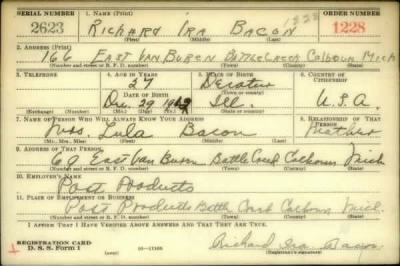 SERIAL NUMBER 1. NAME (Print) ORDER NUMBER
2623 RICHARD IRA BACON 1228
(First) (Middle) (Last)
2. ADDRESS (Print)
166 EAST VAN BUREN BATTLE CREEK CALHOUN MICH
(Number and street or R. F. D. number) (Town) (County) (State)
3. TELEPHONE 4. AGE IN YEARS 5. PLACE OF BIRTH 6. COUNTRY OF CITIZENSHIP
27 Decatur
DATE OF BIRTH (Town or county)
Dec. 29 Ill. U.S.A.
(Exchange) (Number) (Mo.) (Day) (Yr.) (State or country)
7. NAME OF PERSON WHO WILL ALWAYS KNOW YOUR ADDRESS 8. RELATIONSHIP OF THAT PERSON
Mrs. Lula Bacon Mother
(Mr., Mrs., Miss) (First) (Middle) (Last)
9. ADDRESS OF THAT PERSON
69 East Van Buren Battle Creek Calhoun Mich
(Number and street or R. F. D. number) (Town) (County) (State)
10. EMPLOYER'S NAME
Post Products
11. PLACE OF EMPLOYMENT OR BUSINESS
Post Products Battle Creek Calhoun Mich.
(Number and street or R. F. D. number) (Town) (County) (State)
I AFFIRM THAT I HAVE VERIFIED ABOVE ANSWERS AND THAT THEY ARE TRUE.
REGISTRATION CARD
D. S. S. Form 1 (over) 16-17105 Richard Ira Bacon
(Registrant's signature)